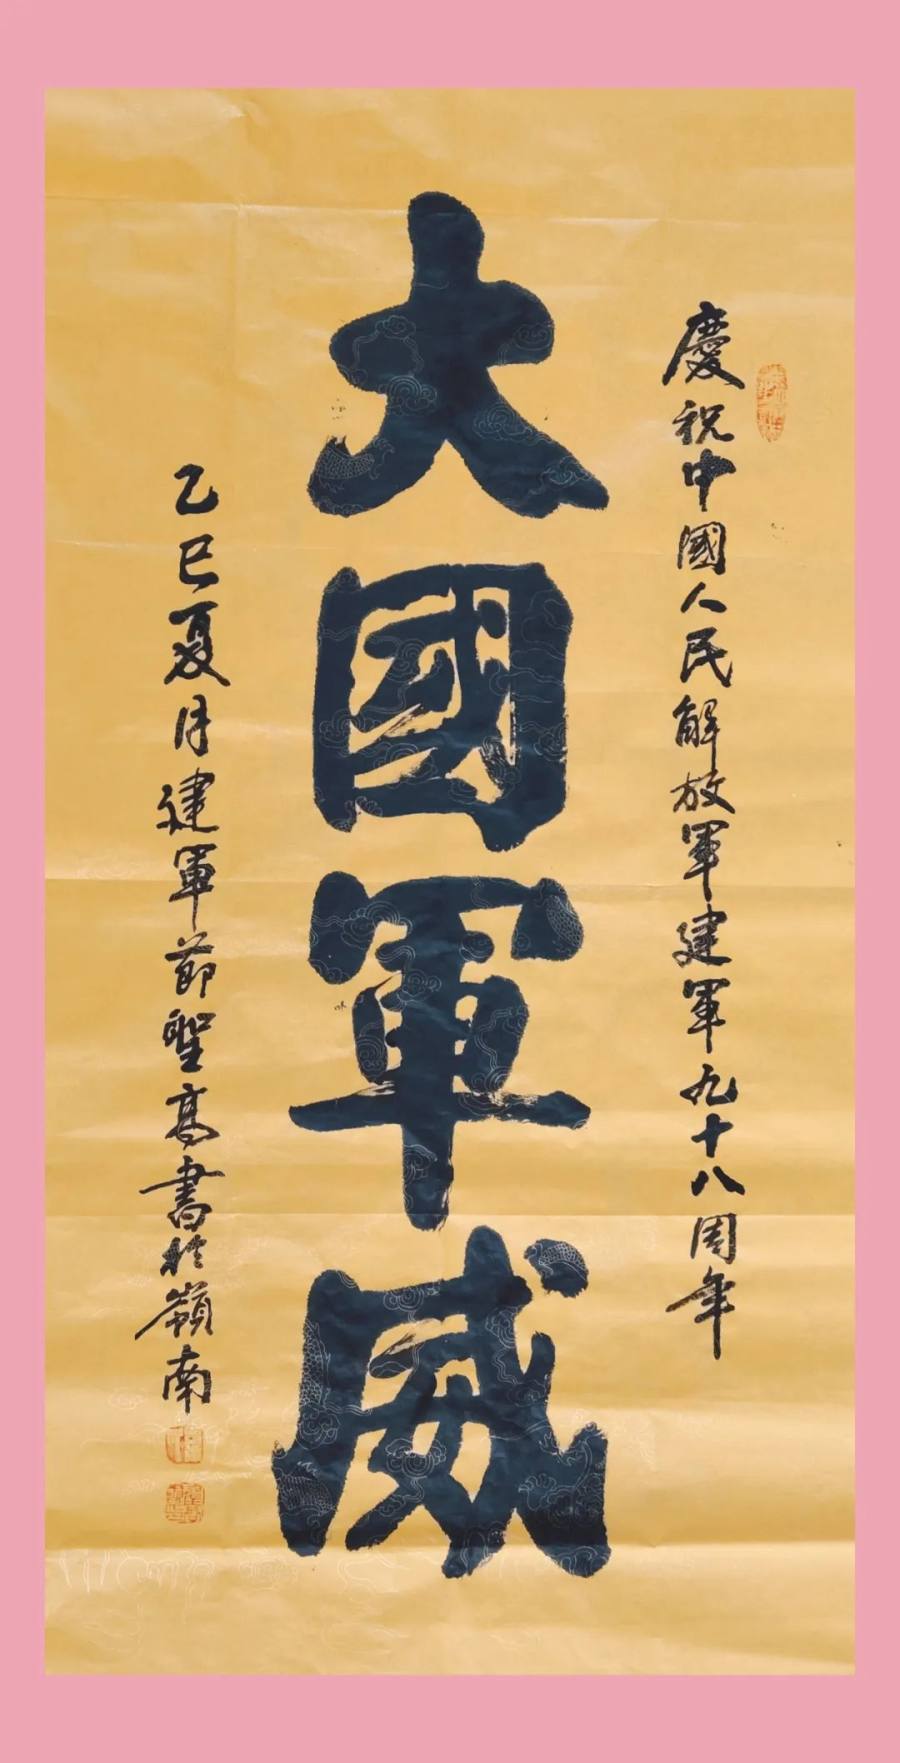 慶祝中國人民解放軍建軍九十八周年
大國軍威
乙巳夏月建軍節聖高書於嶺南